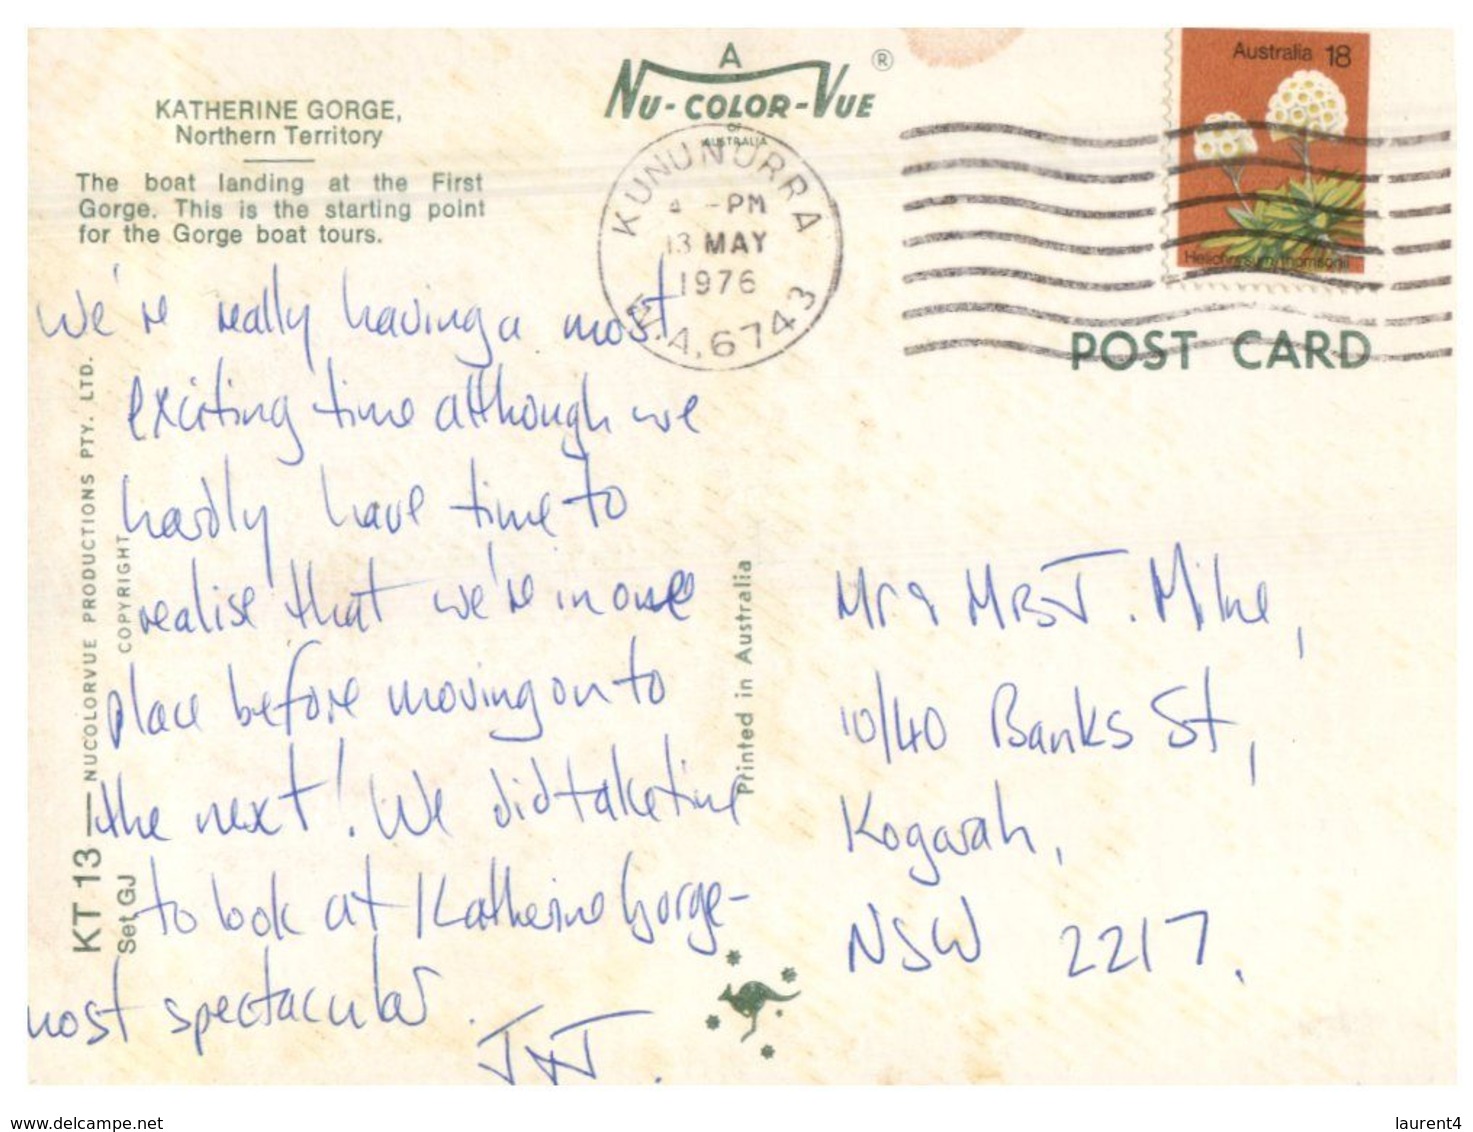 A
NU-COLOR-VUE ®
OF
AUSTRALIA
KATHERINE GORGE,
Northern Territory
The boat landing at the First
Gorge. This is the starting point
for the Gorge boat tours.
We're really having a most
exciting time although we
hardly have time to
realise that we're in one
place before moving on to
the next! We did take time
to look at Katherine Gorge-
most spectacular.
J & J.
KT 13 — NUCOLORVUE PRODUCTIONS PTY. LTD.
Set GJ COPYRIGHT
Printed in Australia
KUNUNURRA
4 -PM
13 MAY
1976
W.A. 6743
Australia 18
Helichrysum thomsonii
POST CARD
Mr & Mrs J. Milne,
10/40 Banks St,
Kogarah,
NSW 2217.
www.delcampe.net
laurent4